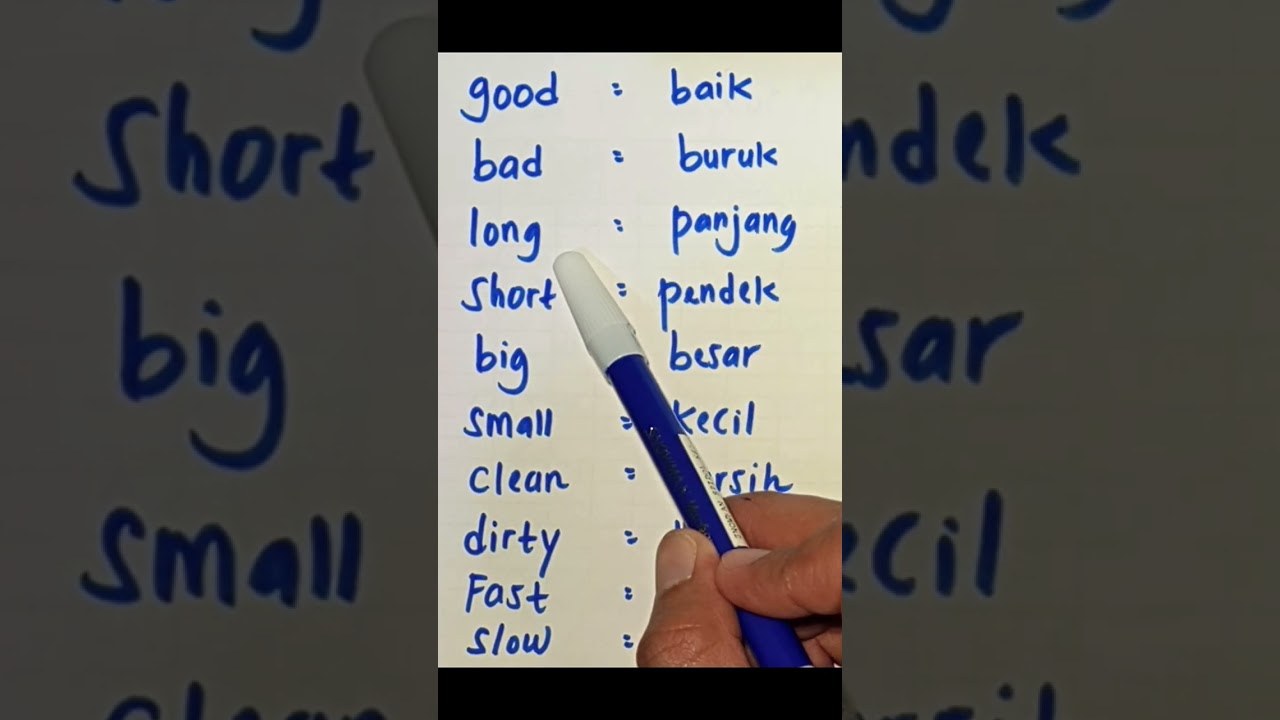 good = baik
bad = buruk
long = panjang
Short = pendek
big besar
Small = kecil
Clean =
dirty =
Fast =
Slow =